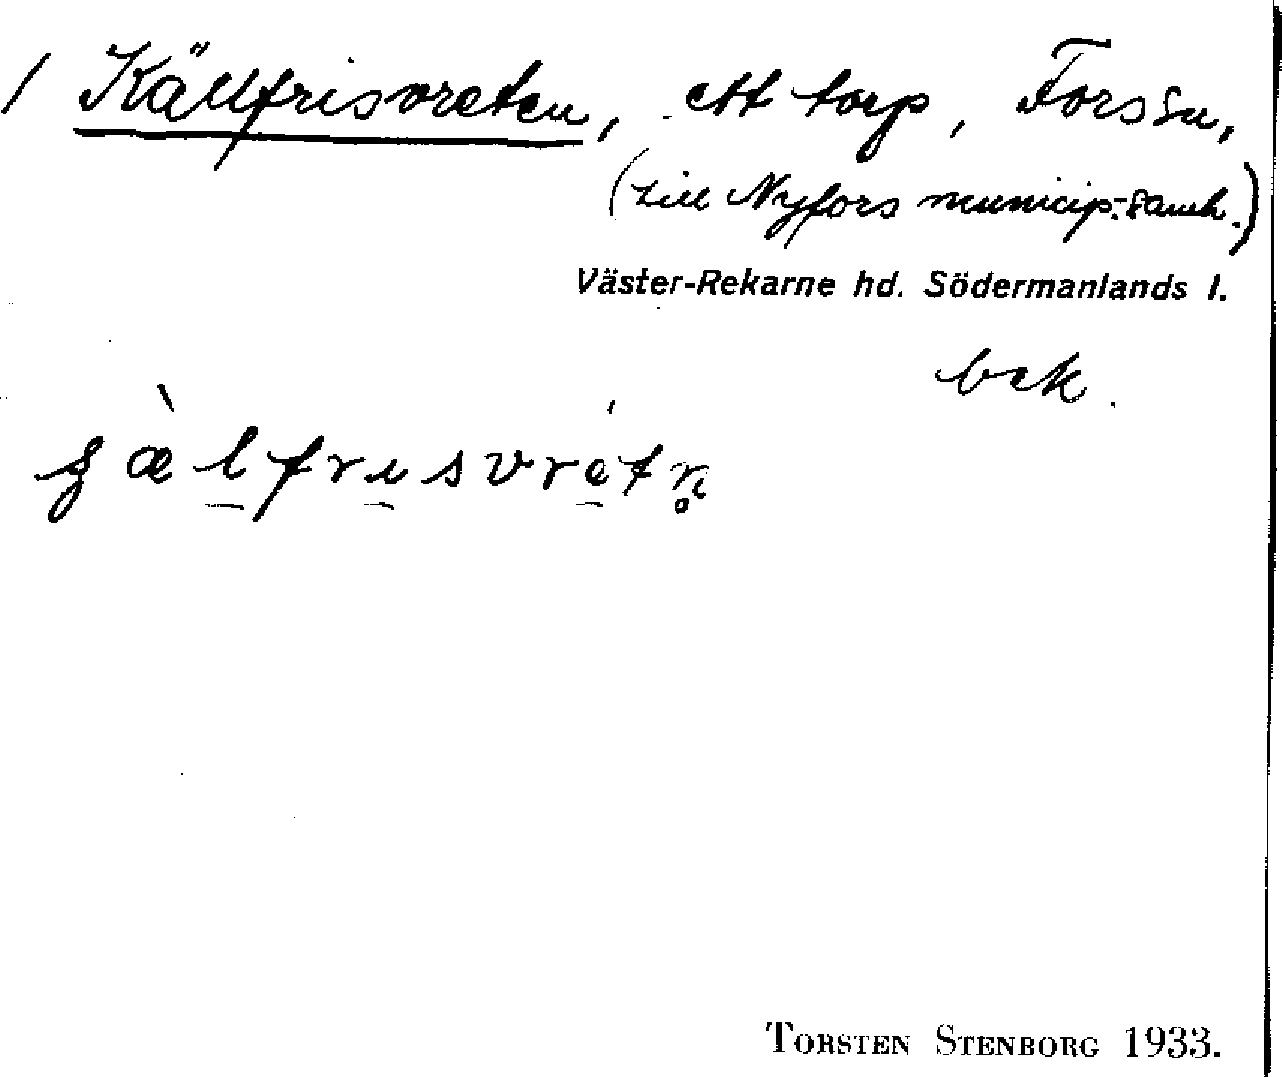 / Källfrisvreten, ett torp, Fors sn,
(till Nyfors municip.-samh.)
Väster-Rekarne hd. Södermanlands l.
bek.
TORSTEN STENBORG 1933.